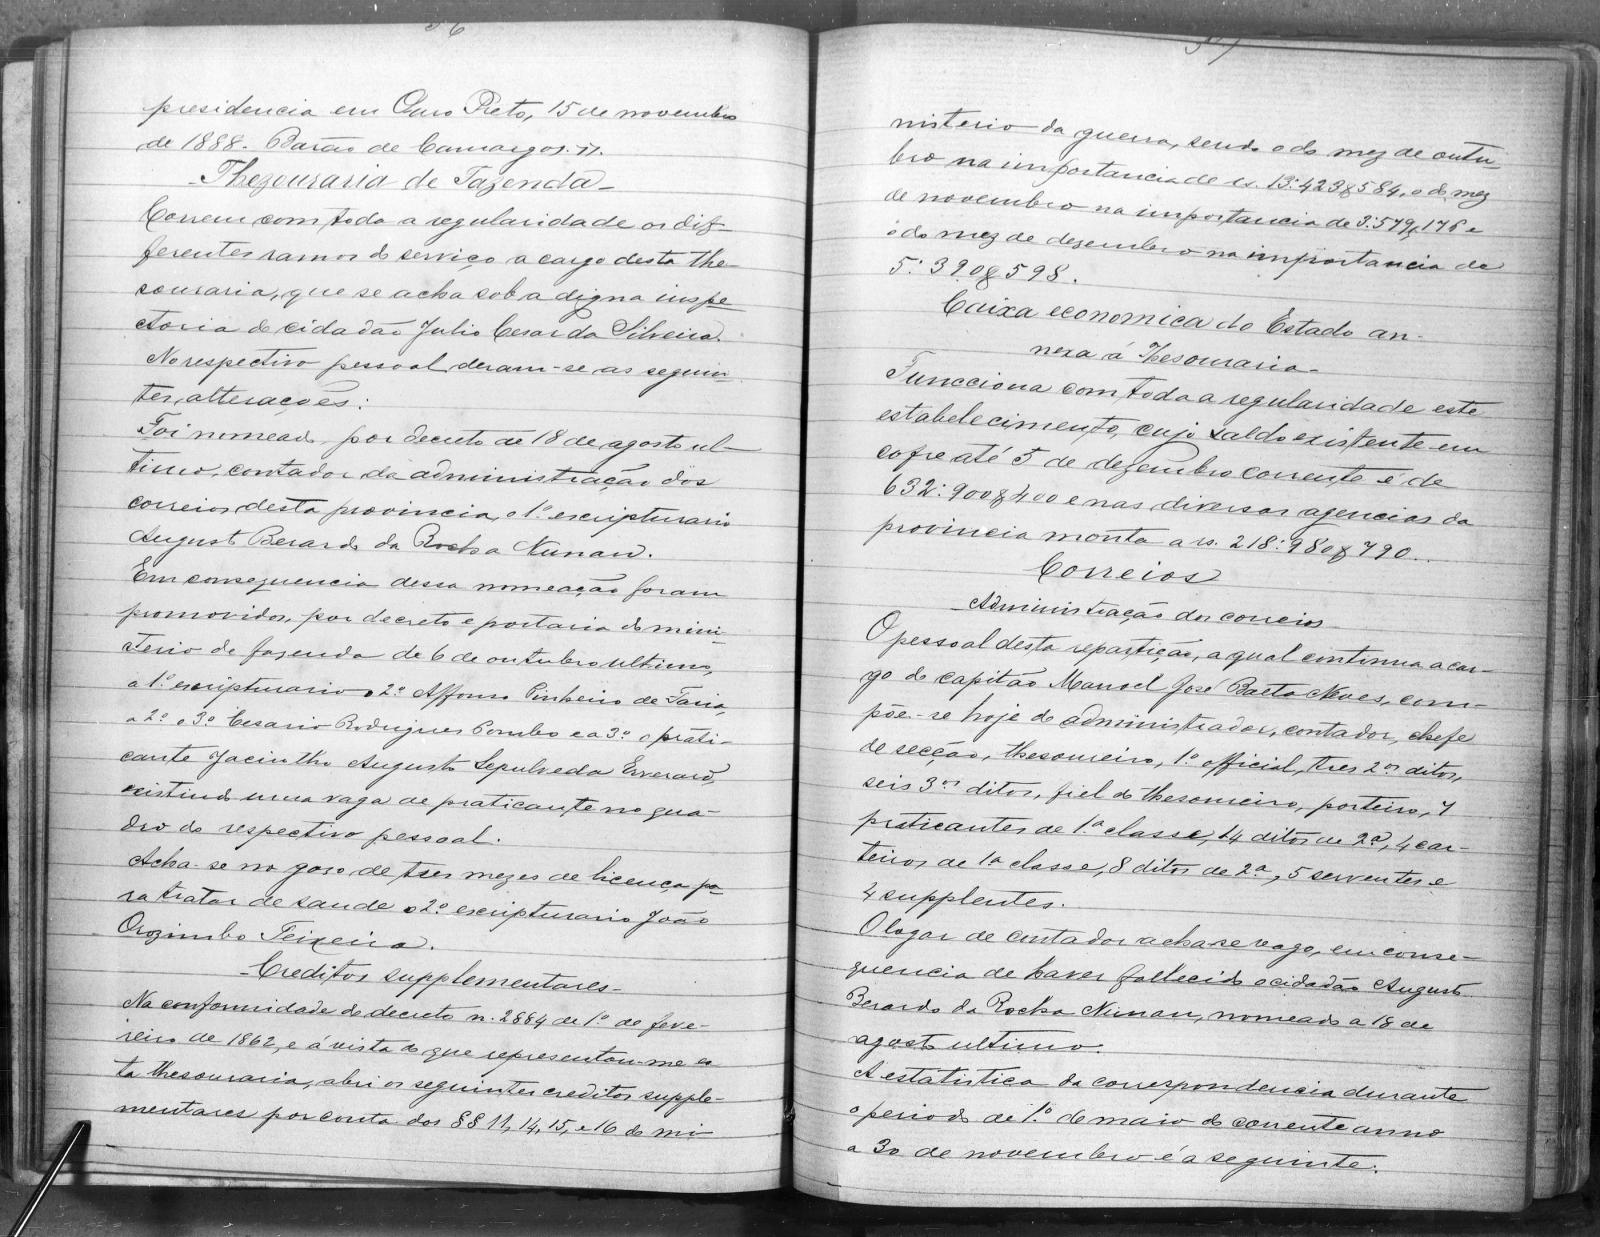 56
presidencia em Ouro Preto, 15 de novembro
de 1888. Barão de Camargos. 77.
Thezouraria de Fazenda
Correm com toda a regularidade os dif-
ferentes ramos do serviço a cargo desta the-
souraria, que se acha sob a digna inspe-
ctoria do cidadão Julio Cesar da Silveira.
No respectivo pessoal deram-se as seguin-
tes, alterações:
Foi nomeado, por decreto de 18 de agosto ul-
timo, contador da administração dos
correios desta provincia, o 1º escripturario
Augusto Berardo da Rocha Nunan.
Em consequencia dessa nomeação foram
promovidos, por decreto e portaria do minis-
terio da fazenda de 6 de outubro ultimo,
a 1º escripturario o 2º Affonso Pinheiro de Faria,
a 2º o 3º Cesario Rodrigues Pombo e a 3º o prati-
cante Jacintho Augusto Sepulveda Everard,
existindo uma vaga de praticante no qua-
dro do respectivo pessoal.
Acha-se no goso de tres mezes de licença pa
ra tratar de saude o 2º escripturario João
Orozimbo Teixeira.
Creditos supplementares
Na conformidade do decreto n. 2884 de 1º de feve-
reiro de 1862, e á vista do que representou-me es
ta thesouraria, abri os seguintes creditos supple-
mentares por conta dos §§ 11, 14, 15, e 16 do mi-
57
nisterio da guerra, sendo o do mez de outu-
bro na importancia de rs. 13:423$584, o do mez
de novembro na importancia de 3:579$176 e
o do mez de dezembro na importancia de
5:390$598.
Caixa economica do Estado an-
nexa á Thesouraria
Funcciona com toda a regularidade este
estabelecimento, cujo saldo existente em
cofre até 5 de dezembro corrente é de
632:900$400 e nas diversas agencias da
provincia monta a rs. 218:980$790.
Correios
Administração dos correios
O pessoal desta repartição, a qual continua a car-
go do capitão Manoel José Baeta Neves, com-
põe-se hoje do administrador, contador, chefe
de secção, thesoureiro, 1º official, tres 2os ditos,
seis 3os ditos, fiel do thesoureiro, porteiro, 7
praticantes de 1ª classe, 14 ditos de 2ª, 4 car-
teiros de 1ª classe, 8 ditos de 2ª, 5 serventes e
4 supplentes.
O logar de contador acha-se vago, em conse-
quencia de haver fallecido o cidadão Augusto
Berardo da Rocha Nunan, nomeado a 18 de
agosto ultimo.
A estatistica da correspondencia durante
o periodo de 1º de maio do corrente anno
a 30 de novembro é a seguinte: